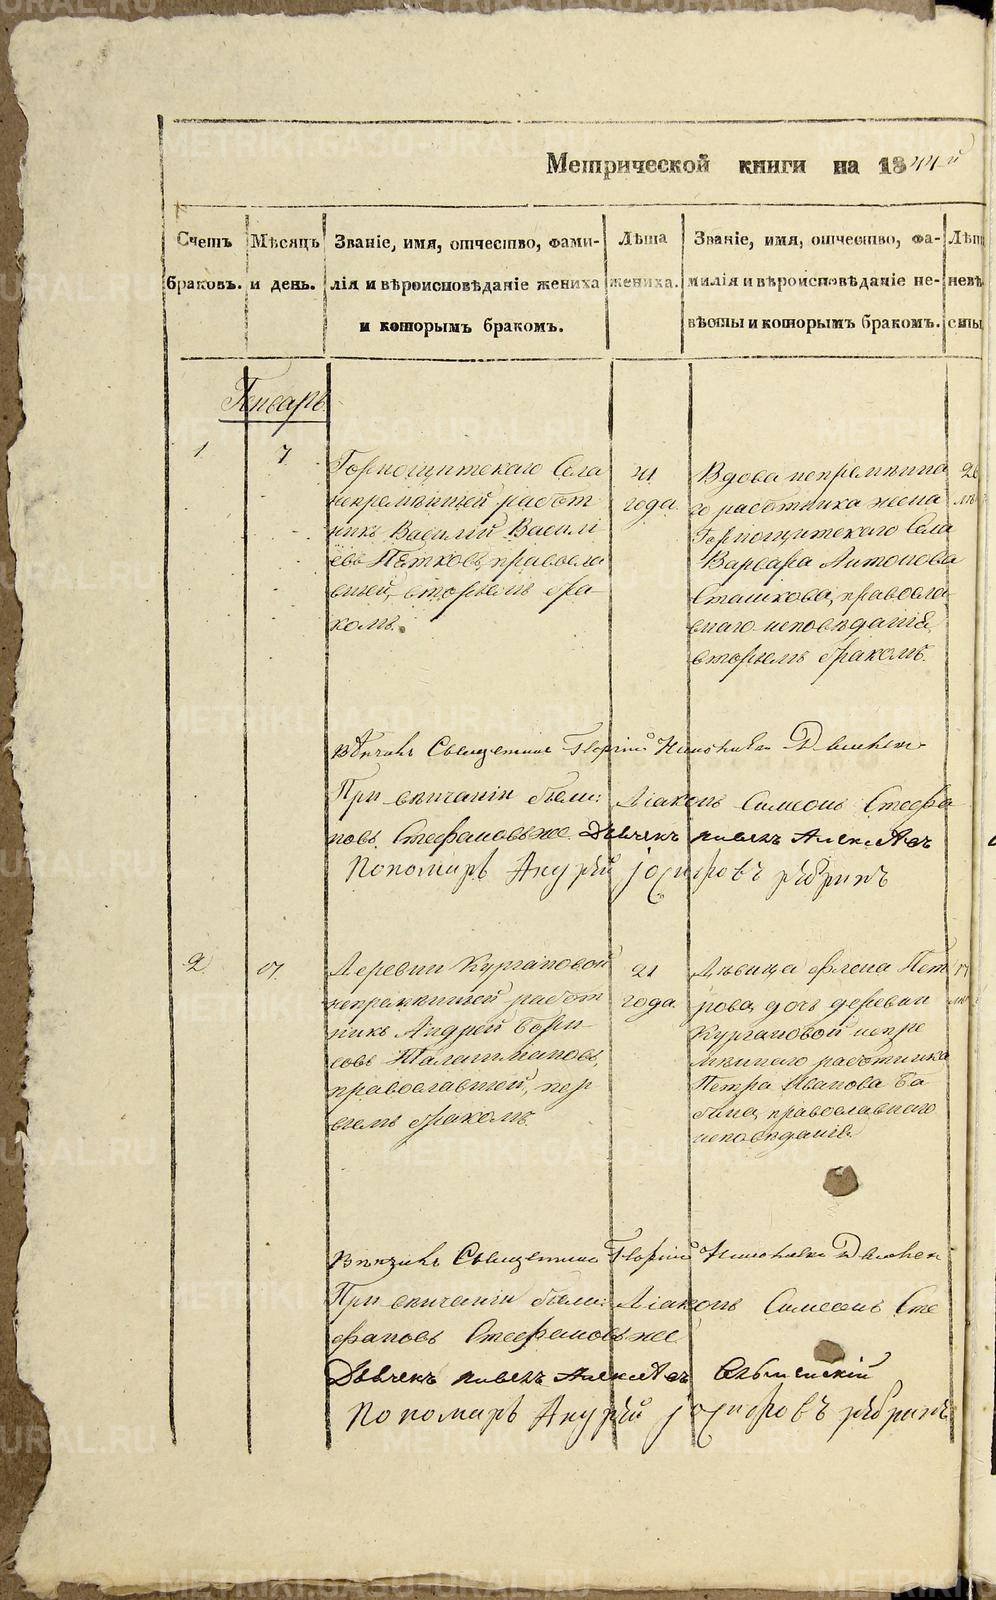 Метрической книги на 1844й
Счетъ браковъ.
Мѣсяцъ и день.
Званіе, имя, отчество, фамилія и вѣроисповѣданіе жениха и которымъ бракомъ.
Лѣта жениха.
Званіе, имя, отчество, фамилія и вѣроисповѣданіе невѣсты и которымъ бракомъ.
Лѣта невѣсты
Генварь
1
7
Горнощитскаго Села
непремѣнный работ
никъ Василій Василь
евъ Пѣтковъ, правосла
вный, вторымъ бра
комъ.
41
года.
Вдова непремѣнна
го работника жена
Горнощитскаго Села
Варвара Антонова
Сташкова, правосла
внаго исповѣданія,
вторымъ бракомъ.
26
лѣ
Вѣнчалъ Священникъ Георгій
При вѣнчаніи были: Діаконъ Симеонъ Стефа
новъ Стефановъ же Дьячекъ Павелъ Алексѣевъ
Пономарь Андрѣй Іосифовъ
2
7
Деревни Кургановой
непремѣнный работ
никъ Андрей Бори
совъ Талашмановъ,
православный, пер
вымъ бракомъ.
21
года.
Дѣвица Елена Пет
рова, дочь деревни
Кургановой непре
мѣннаго работника
Петра Иванова Ба
бина, православнаго
исповѣданія
17
лѣ
Вѣнчалъ Священникъ Георгій
При вѣнчаніи были: Діаконъ Симеонъ Сте
фановъ Стефановъ же
Дьячекъ Павелъ Алексѣевъ
Пономарь Андрѣй Іосифовъ
METRIKI.GASO-URAL.RU